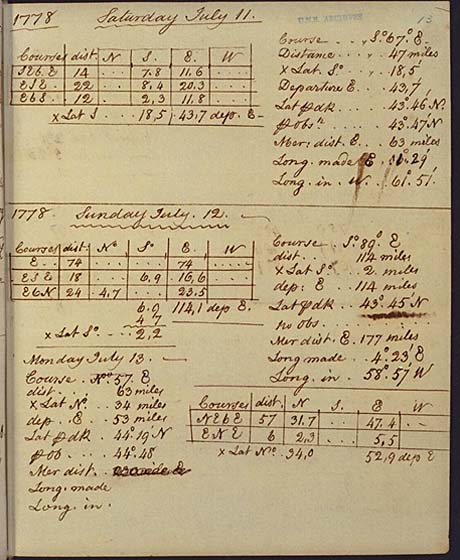 1778 Saturday July 11.
U.N.H. ARCHIVES
13
Courses dist. N S. E. W
SEbE 14 ... 7.8 11.6
ESE 22 ... 8.4 20.3
EbS. 12 ... 2.3 11.8
x Lat S .. 18,5 43,7 dep. E
Course ... S.o 67.o E.
Distance ... 47 miles
x Lat S.o ... 18,5
Departure E .. 43,7
Lat p dk .. 43.o 46 N.
p obs.n .. 43.o 47 N
Mer. dist. E .. 63 miles
Long. made E 29'
Long. in . W. . 61.o 51'
1778 Sunday July. 12.
Courses dist. N.o S.o E. W
E. 74 ... ... 74 ...
ESE 18 ... 6,9 16,6
EbN 24 4,7 ... 23.5
6.9 114,1 dep E.
4 7
x Lat S.o .. 2,2
Course . S.o 89.o E
dist .... 114 miles
x Lat S.o .. 2 miles
dep: E .. 114 miles
Lat p dk . 43.o 45 N
no obs ...
Mer dist. E. 177 miles
Long made .. 4.o 23' E
Long. in .. 58.o 57 W
Monday July 13.
Course . N.o 57. E.
dist. .. 63 miles
x Lat N.o . 34 miles
dep .. E . 53 miles
Lat p dk . 44.o 19 N
p ob ... 44.o 48
Mer dist.
Long. made
Long. in .
Courses dist. N S. E W
NEbE 57 31.7 ... 47.4 ..
ENE 6 2,3 ... 5,5
x Lat N.o . 34,0 52,9 dep E